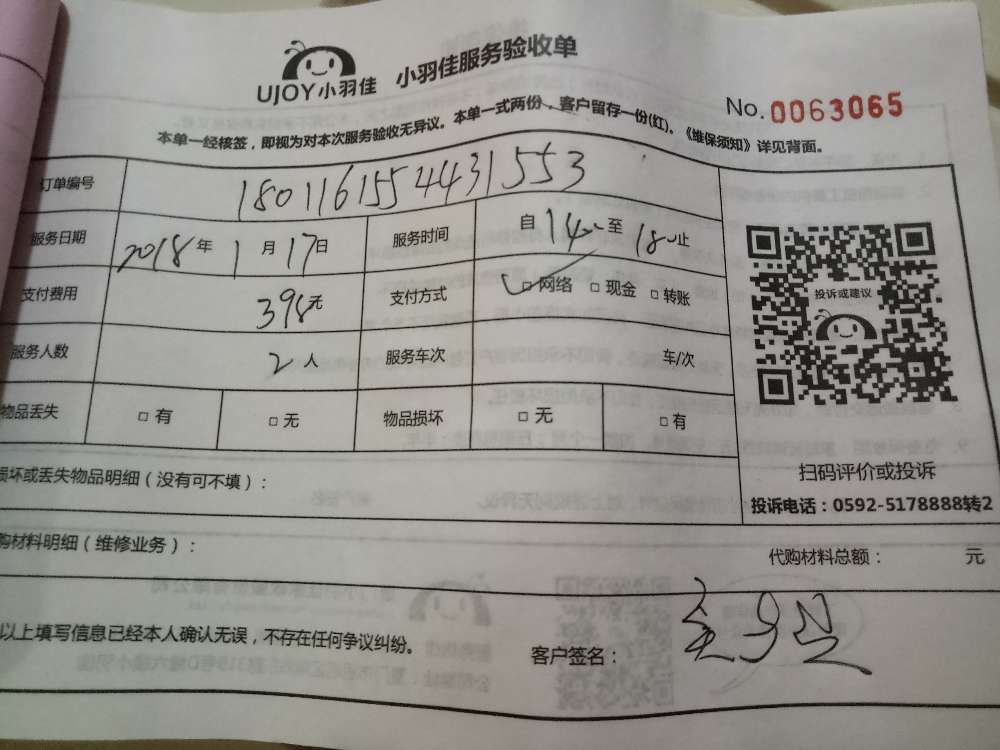 UJOY小羽佳 小羽佳服务验收单
No.0063065
本单一经核签，即视为对本次服务验收无异议。本单一式两份，客户留存一份(红)。《维保须知》详见背面。
订单编号 1801161554431553
服务日期 2018年1月17日 服务时间 自14至18止
支付费用 398元 支付方式 □网络 □现金 □转账
服务人数 2人 服务车次 车/次
物品丢失 □有 □无 物品损坏 □无 □有
投诉或建议
扫码评价或投诉
投诉电话：0592-5178888转2
损坏或丢失物品明细（没有可不填）：
购材料明细（维修业务）： 代购材料总额： 元
以上填写信息已经本人确认无误，不存在任何争议纠纷。 客户签名：